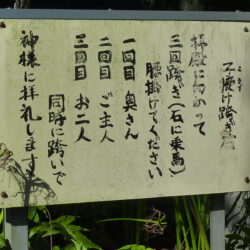 子授け跨ぎ石
拝殿に向かって
三回跨ぎ(石に乗馬)
腰掛けてください
一回目 奥さん
二回目 ご主人
三回目 お二人
同時に跨いで
神様に拝礼します